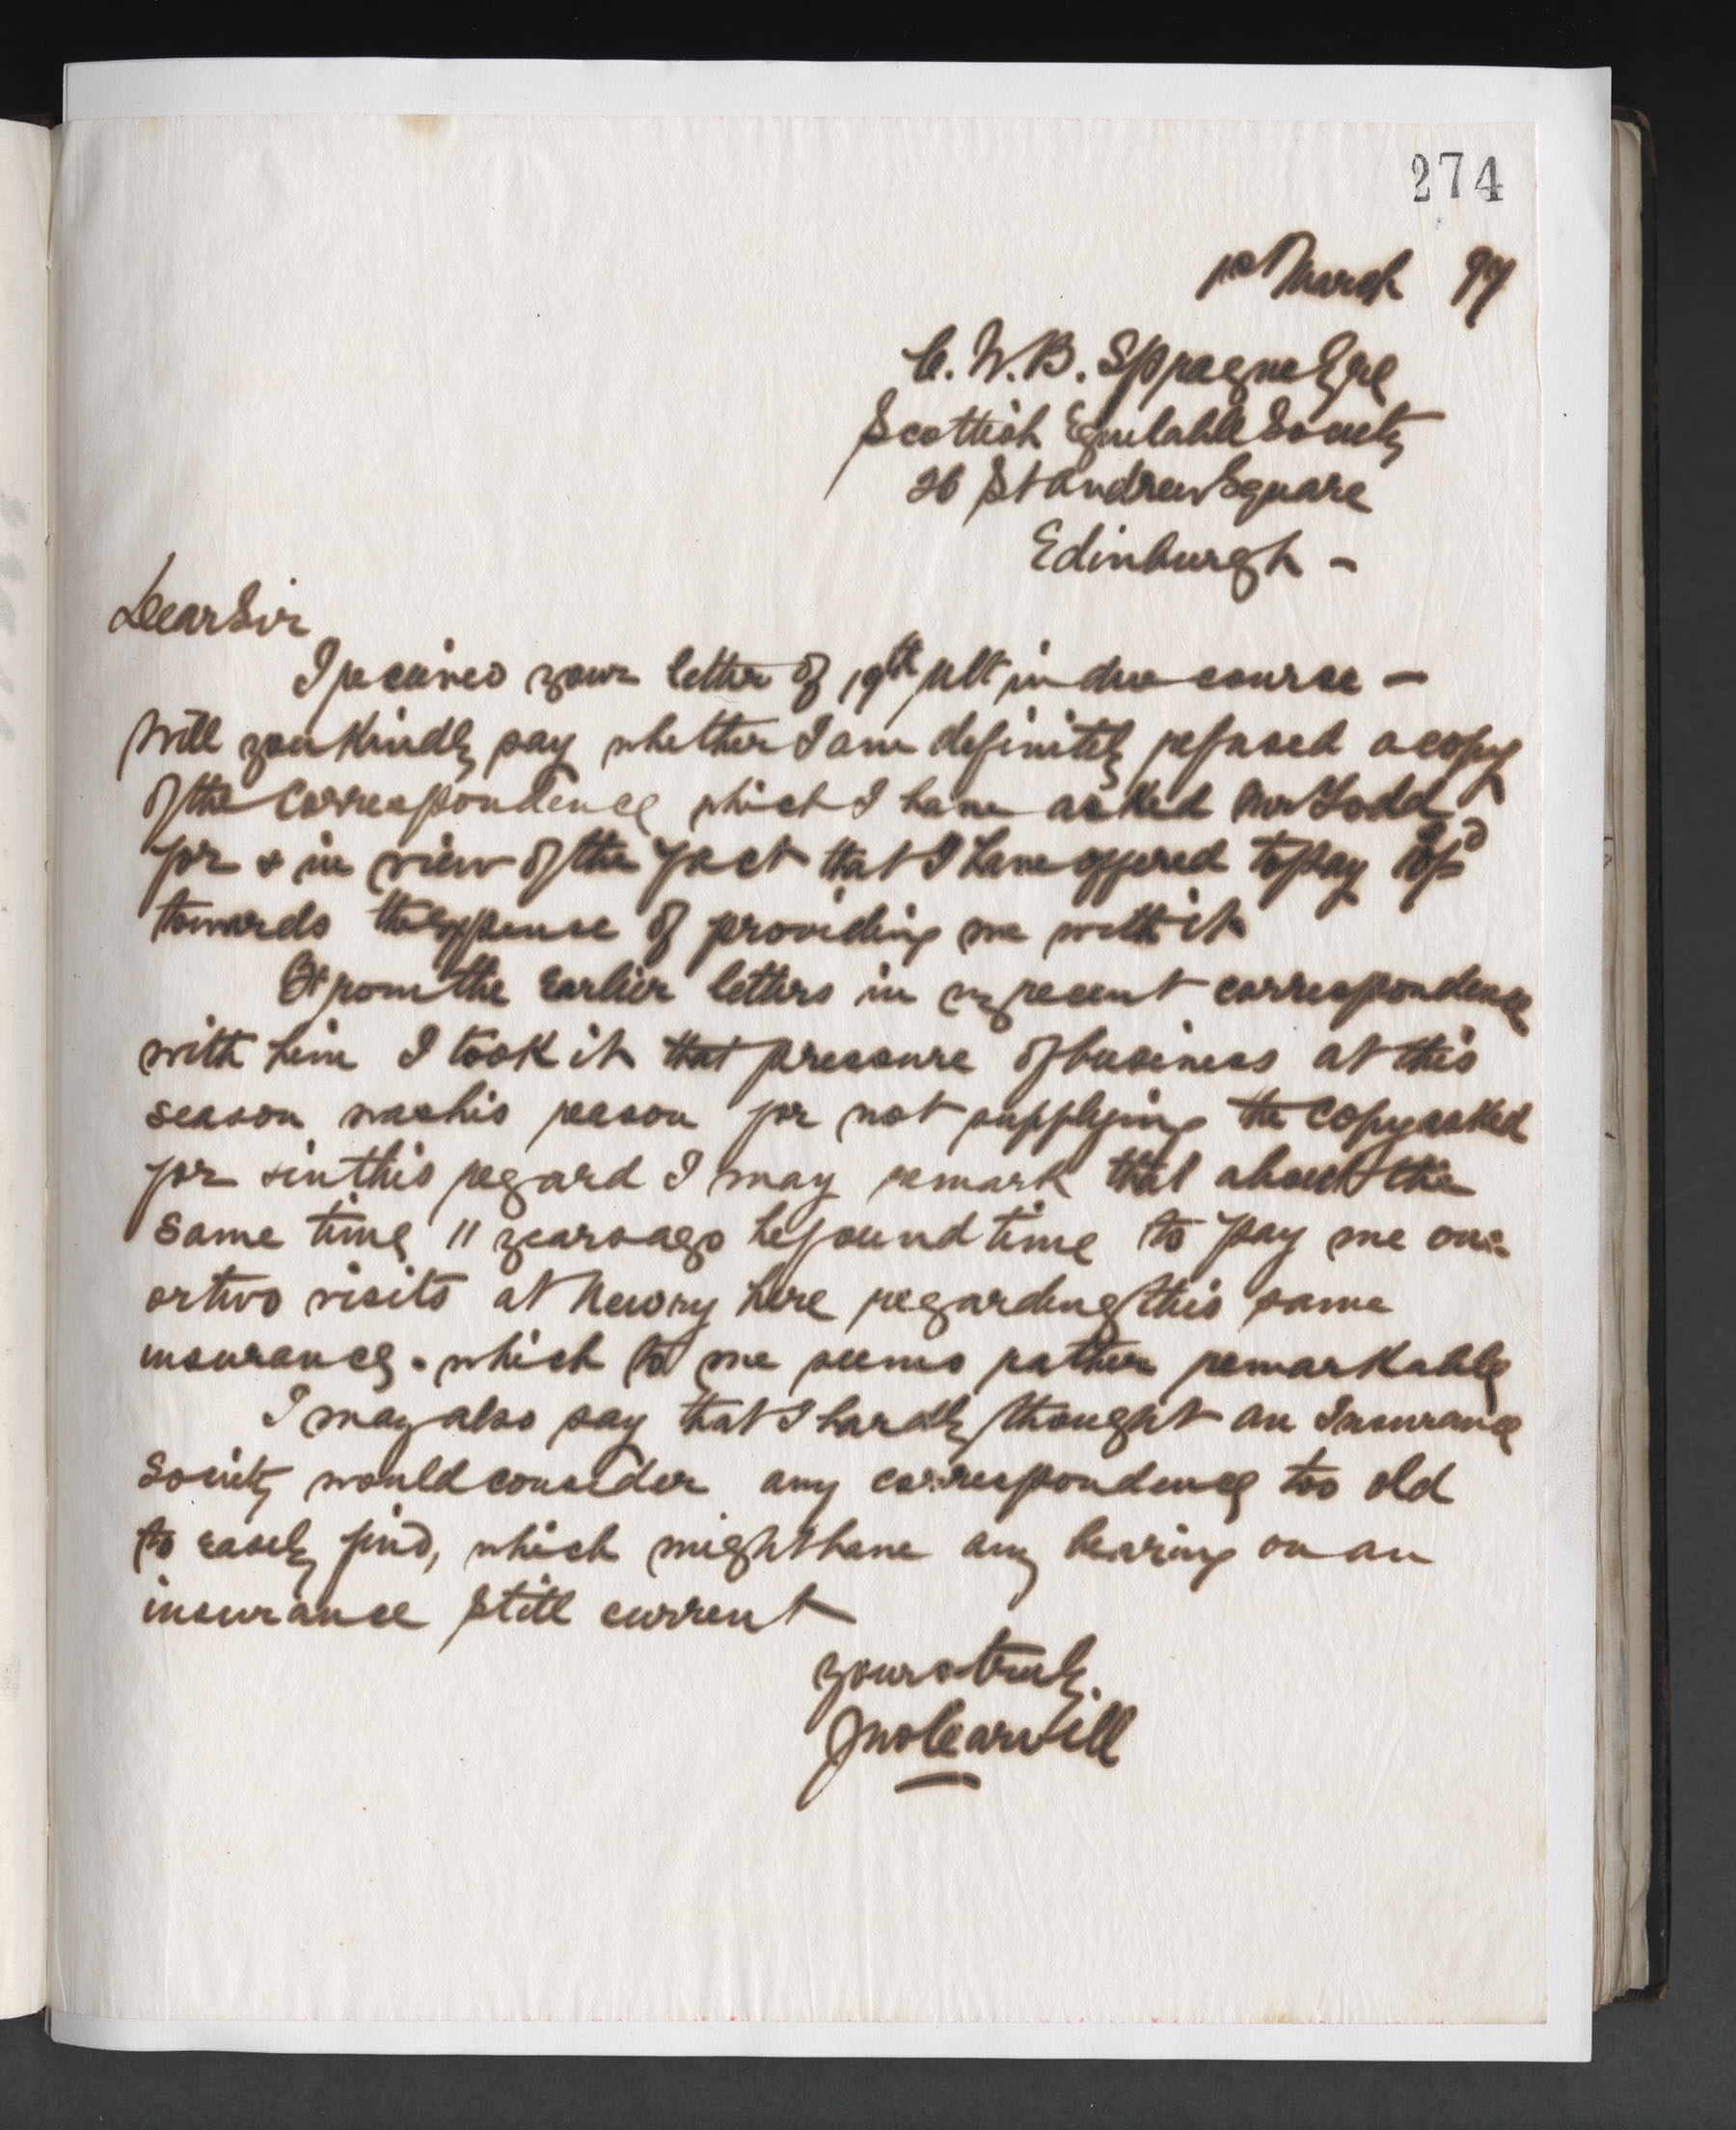 274
1st March 97
C. W. B. Sprague Esqre
Scottish Equitable Society
26 St Andrew Square
Edinburgh -
Dear Sir
I received your letter of 19th ult in due course -
Will you kindly say whether I am definitely refused a copy
of the Correspondence which I have asked Mr Todd
for & in view of the fact that I have offered to pay
towards the expense of providing me with it
From the earlier letters in my recent correspondence
with him I took it that pressure of business at this
season was his reason for not supplying the copy asked
for & in this regard I may remark that about the
same time 11 years ago he found time to pay me one
or two visits at Newry here regarding this same
insurance - which to me seems rather remarkable
I may also say that I hardly thought an Insurance
Society would consider any correspondence too old
to easily find, which might have any bearing on an
insurance still current
Yours truly.
Jno Carvill